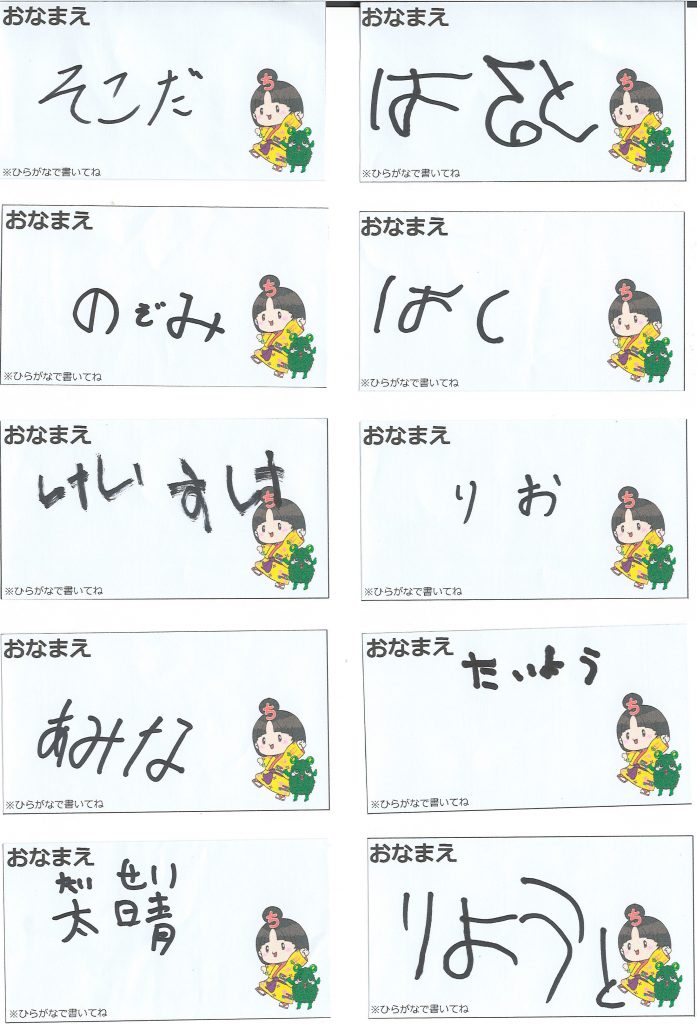 おなまえ
そこだ
ち
※ひらがなで書いてね
おなまえ
はると
ち
※ひらがなで書いてね
おなまえ
のぞみ
ち
※ひらがなで書いてね
おなまえ
はく
ち
※ひらがなで書いてね
おなまえ
けいすけ
ち
※ひらがなで書いてね
おなまえ
りお
ち
※ひらがなで書いてね
おなまえ
あみな
ち
※ひらがなで書いてね
おなまえ
たいよう
ち
※ひらがなで書いてね
おなまえ
たい せい
太晴
ち
※ひらがなで書いてね
おなまえ
りようと
ち
※ひらがなで書いてね